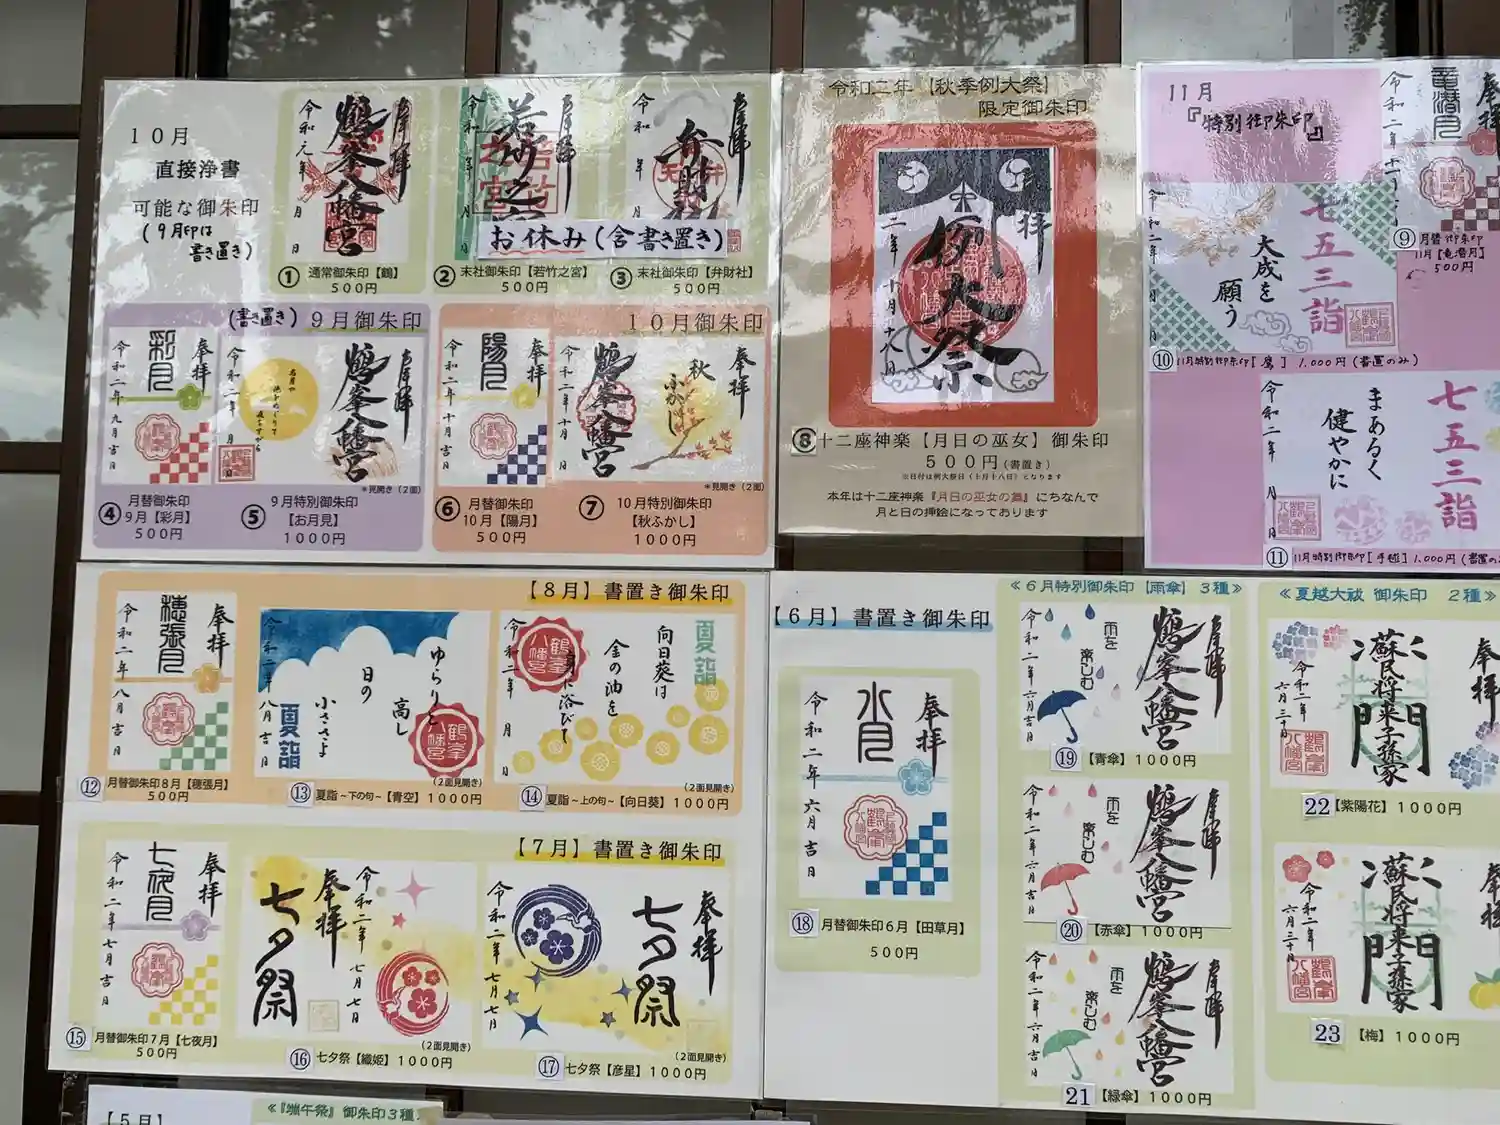 10月
直接浄書
可能な御朱印
(9月印は
書き置き)
奉拝
鶴峯八幡宮
令和元年 月 日
①
通常御朱印【鶴】
500円
②
末社御朱印【若竹之宮】
500円
③
末社御朱印【弁財社】
500円
お休み(含書き置き)
(書き置き)9月御朱印
奉拝
彩月
令和二年九月吉日
④
月替御朱印
9月【彩月】
500円
奉拝
鶴峯八幡宮
⑤
9月特別御朱印
【お月見】
1000円
*見開き(2面)
10月御朱印
奉拝
陽月
令和二年十月吉日
⑥
月替御朱印
10月【陽月】
500円
奉拝
秋
ふかし
鶴峯八幡宮
令和二年十月 日
⑦
10月特別御朱印
【秋ふかし】
1000円
*見開き(2面)
令和二年【秋季例大祭】
限定御朱印
奉拝
例大祭
二年十月十八日
⑧十二座神楽【月日の巫女】御朱印
500円(書置き)
※日付は例大祭日(十月十八日)となります
本年は十二座神楽『月日の巫女の舞』にちなんで
月と日の挿絵になっております
11月
『特別御朱印』
⑨
月替御朱印
11月【竜潜月】
500円
七五三詣
大成を
願う
令和二年 月 日
⑩
11月特別御朱印[鷹] 1,000円(書置のみ)
七五三詣
まあるく
健やかに
令和二年 月 日
⑪
11月特別御朱印[手毬] 1,000円(書置の
【8月】書置き御朱印
奉拝
穂張月
令和二年八月吉日
⑫
月替御朱印8月【穂張月】
500円
ゆらりと
高し
日の
小ささよ
夏詣
令和二年八月吉日
(2面見開き)
⑬夏詣~下の句~【青空】1000円
夏詣
向日葵は
金の油を
身に浴びて
令和二年 月 日
(2面見開き)
⑭夏詣~上の句~【向日葵】1000円
【7月】書置き御朱印
奉拝
七夜月
令和二年七月吉日
⑮
月替御朱印7月【七夜月】
500円
令和二年七月七日
奉拝
七夕祭
(2面見開き)
⑯七夕祭【織姫】1000円
奉拝
七夕祭
令和二年七月七日
(2面見開き)
⑰七夕祭【彦星】1000円
【6月】書置き御朱印
奉拝
水月
令和二年六月吉日
⑱月替御朱印6月【田草月】
500円
≪6月特別御朱印【雨傘】3種≫
奉拝
鶴峯八幡宮
雨を
楽しむ
令和二年六月吉日
⑲【青傘】1000円
奉拝
鶴峯八幡宮
雨を
楽しむ
令和二年六月吉日
⑳【赤傘】1000円
奉拝
鶴峯八幡宮
雨を
楽しむ
令和二年六月吉日
21【緑傘】1000円
≪夏越大祓 御朱印 2種≫
奉拝
蘇民将来子孫家
門
令和二年
六月三十日
22【紫陽花】1000円
奉拝
蘇民将来子孫家
門
令和二年
六月三十日
23【梅】1000円
【5月】
≪『端午祭』御朱印3種